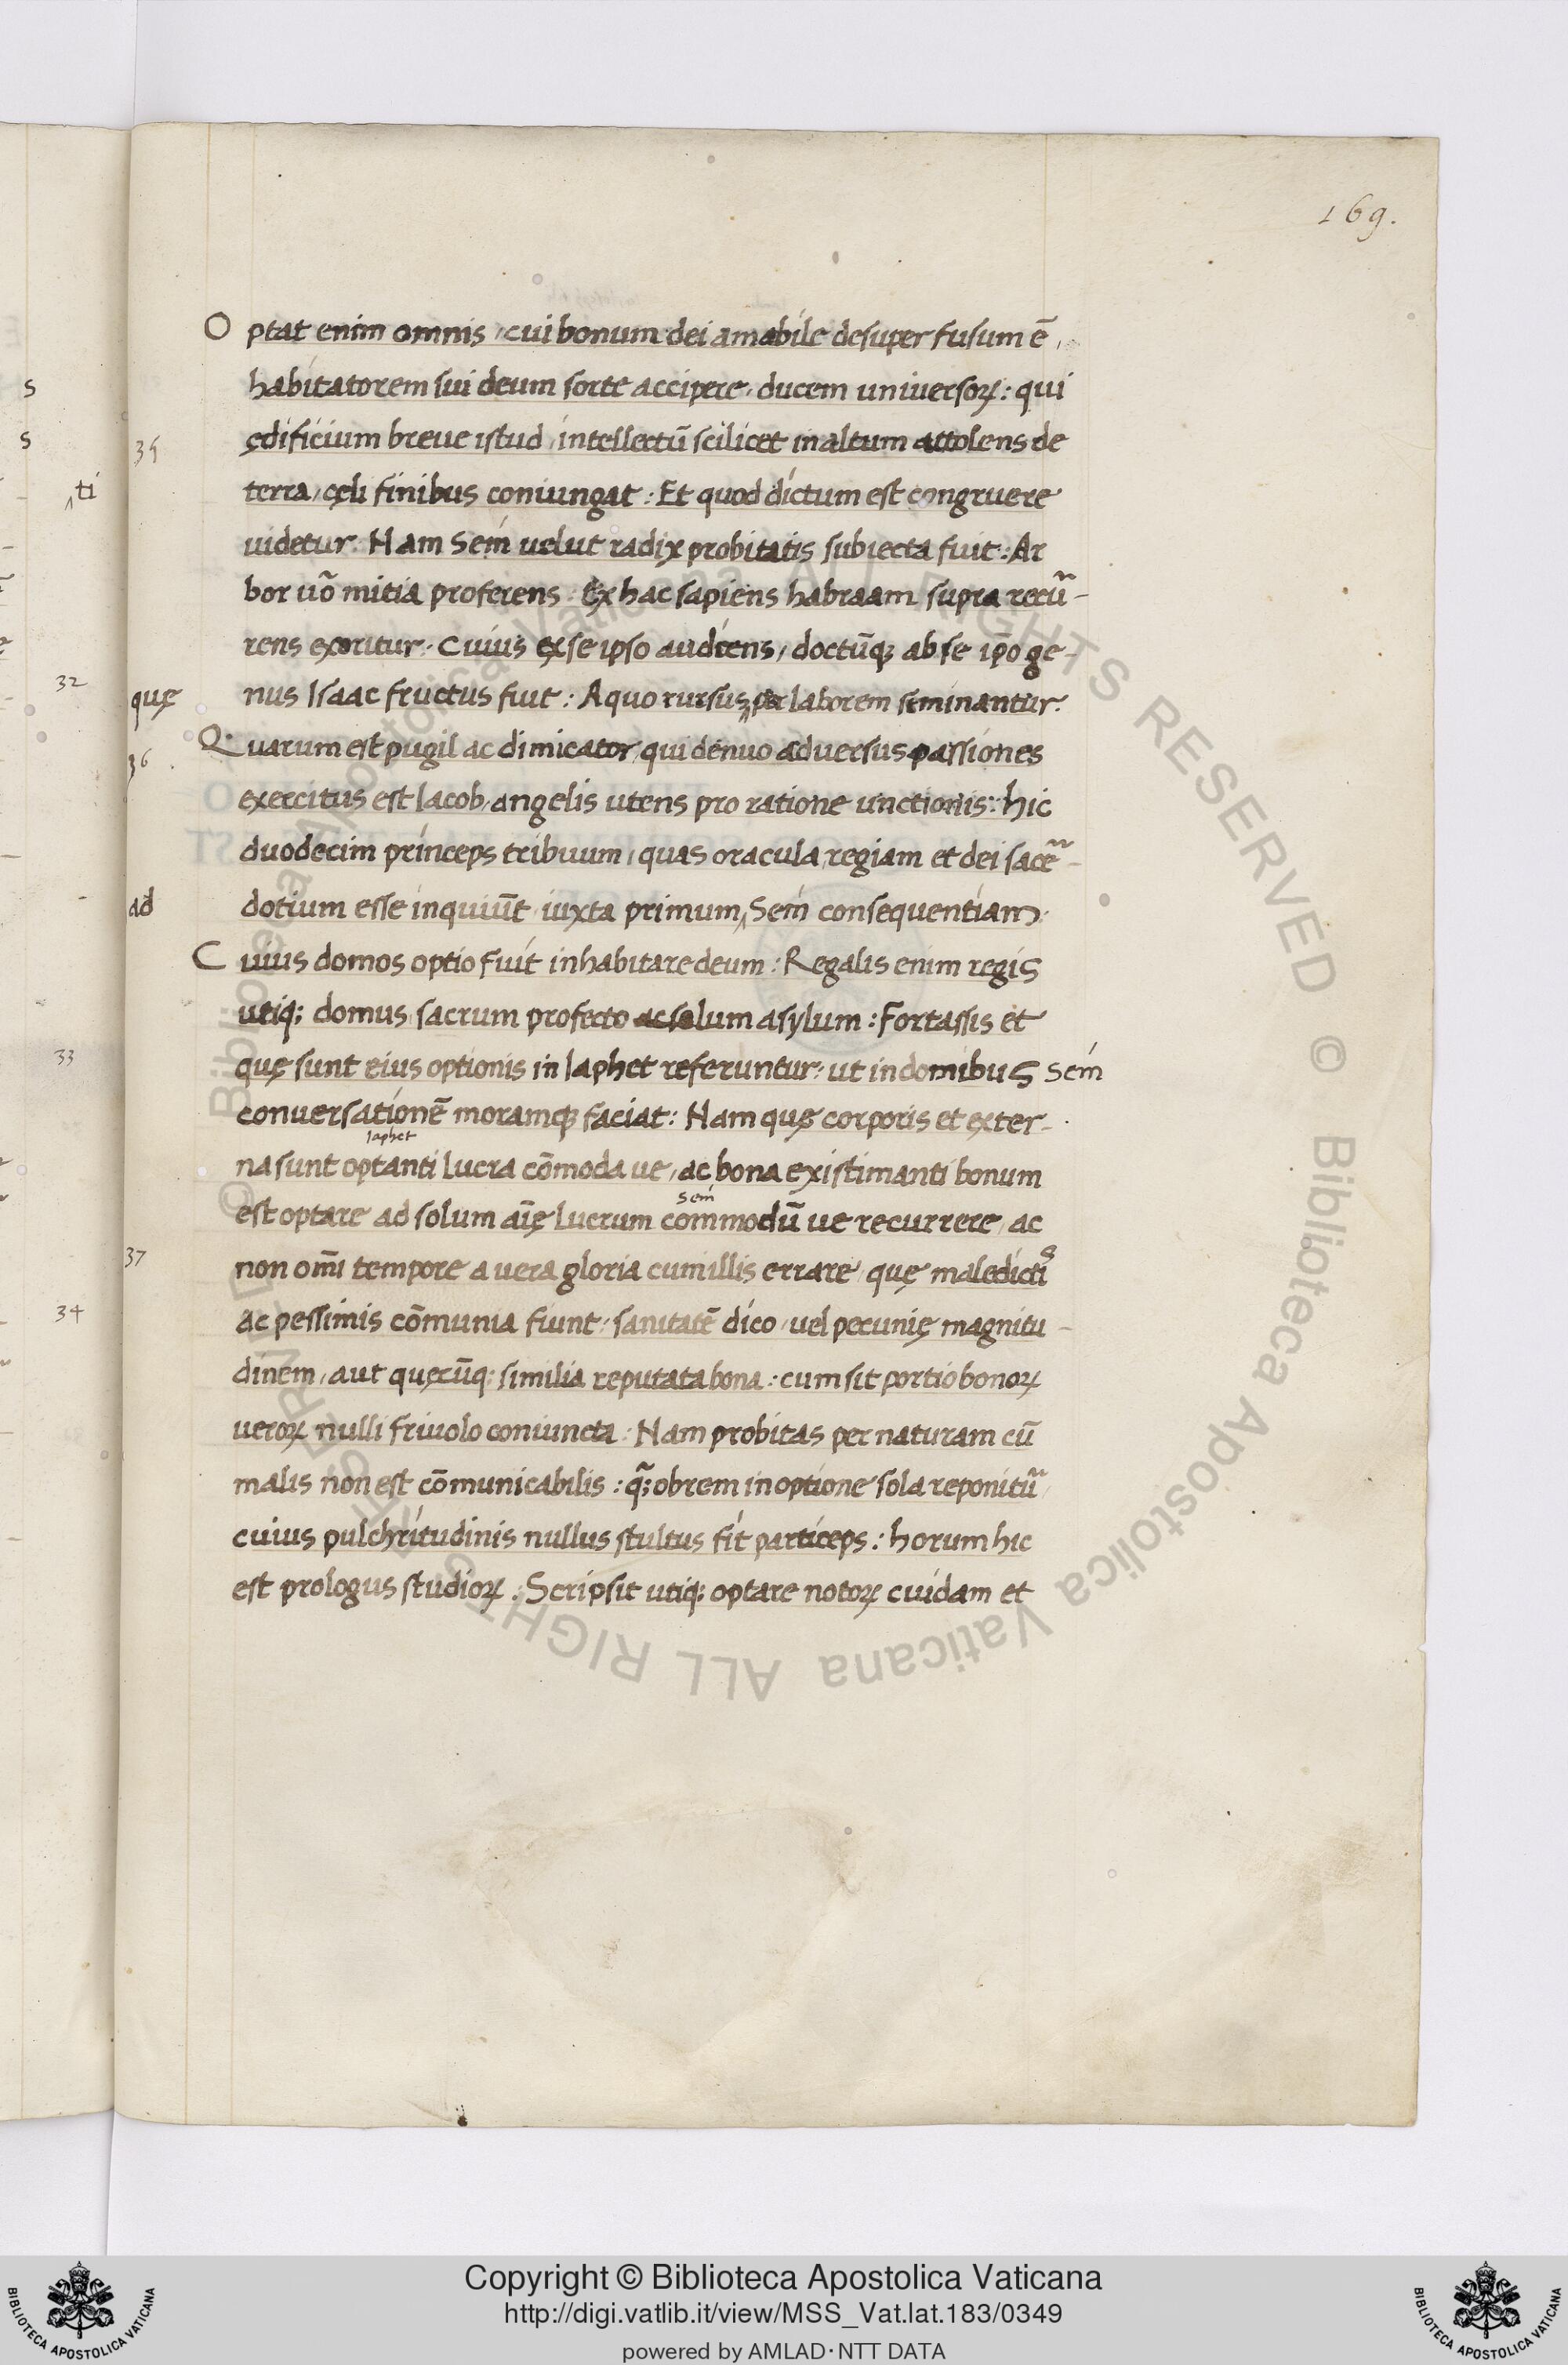 169.
O ptat enim omnis, cui bonum dei amabile desuper fusum ē,
habitatorem sui deum sorte accipere, ducem universoꝝ: qui
ędificium breue istud, intellectū scilicet in altum attolens de
terra, cęli finibus coniungat: Et quod dictum est congruere
uidetur. Nam Sem uelut radix probitatis subiecta fuit: Ar
bor uō mitia proferens. Ex hac sapiens habraam supra recū-
rens exoritur. Cuius ex se ipso audiens, doctūqꝫ ab se ip̄o ge-
nus Isaac fructus fuit: A quo rursus, per laborem seminantur.
Q uarum est pugil ac dimicator, qui denuo adversus passiones
exercitus est Iacob, angelis utens pro ratione unctionis: hic
duodecim princeps tribuum, quas oracula, regiam et dei sacē-
dotium esse inquiūt iuxta primum, Sem consequentiam.
C uius domos optio fuit inhabitare deum: Regalis enim regis
utiqꝫ domus, sacrum profecto ac solum asylum: Fortassis et
quę sunt eius optionis in Iaphet referuntur: ut in domibus Sem
conversationē moramqꝫ faciat: Nam quę corporis et exter-
Iaphet
na sunt optanti lucra cōmoda ue, ac bona existimanti bonum
Sem
est optare ad solum aīę lucrum commodū ue recurrere, ac
non om̄i tempore a uera gloria cum illis errare, quę maledictis
ac pessimis cōmunia fiunt: sanitatē dico, vel pecunię magnitu-
dinem, aut quęcūqꝫ similia reputata bona: cum sit portio bonoꝝ
ueroꝝ nulli friuolo coniuncta: Nam probitas per naturam cū
malis non est cōmunicabilis: q̄ꝫobrem in optione sola reponitū
cuius pulchritudinis nullus stultus fit particeps: horum hic
est prologus studioꝝ. Scripsit utiqꝫ optare notoꝝ cuidam et
35
quę
36
ad
37
s
s
ti
32
33
34
© Biblioteca Apostolica Vaticana ALL RIGHTS RESERVED © Biblioteca Apostolica Vaticana ALL RIGHTS RESERVED
Copyright © Biblioteca Apostolica Vaticana
http://digi.vatlib.it/view/MSS_Vat.lat.183/0349
powered by AMLAD·NTT DATA
BIBLIOTECA APOSTOLICA VATICANA
BIBLIOTECA APOSTOLICA VATICANA